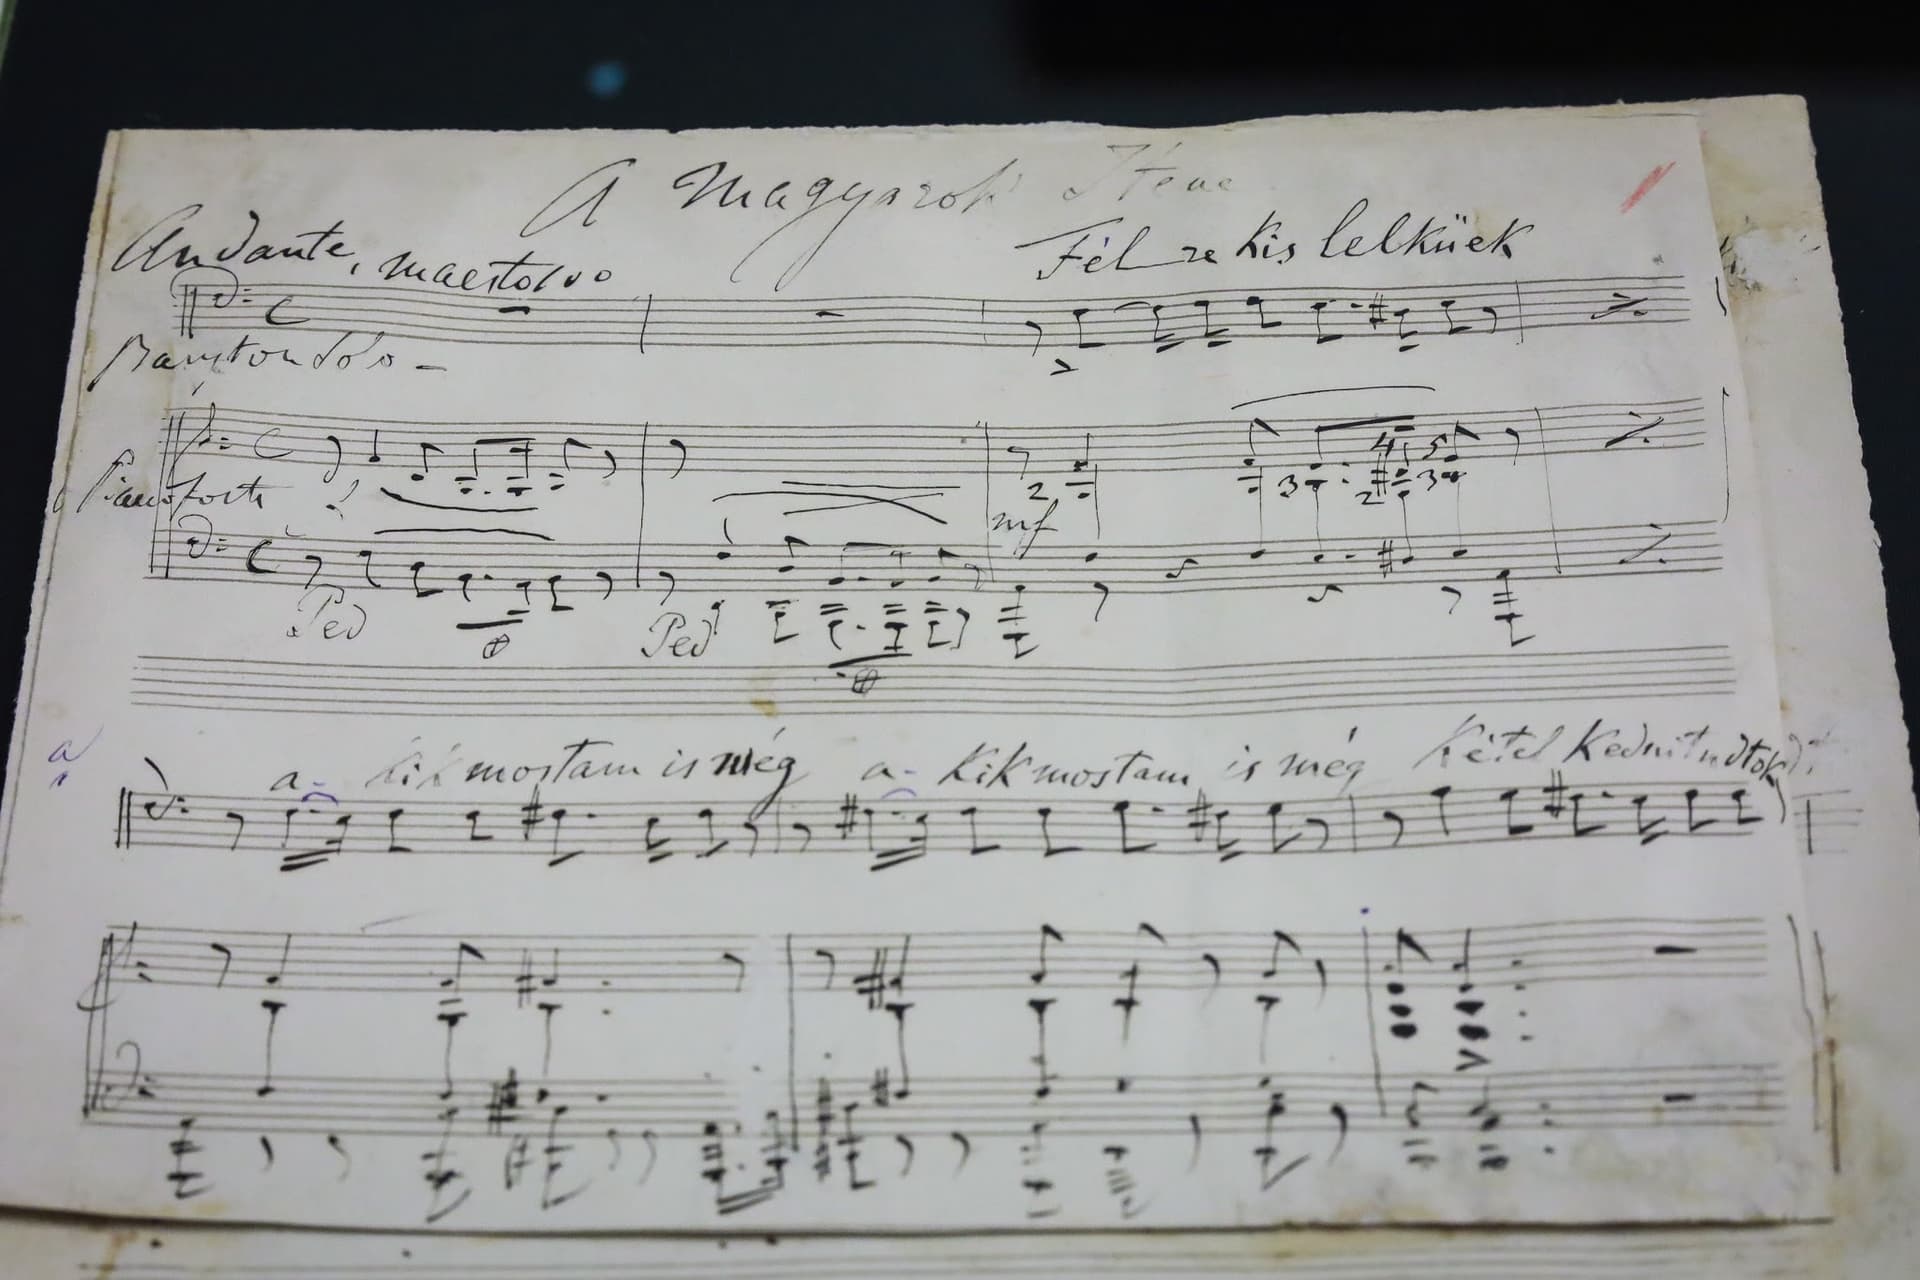 A Magyarok Istene
Andante, maestoso
Félre kis lelküek
Baryton Solo -
Pianoforte
2 3 2 4 3 5
mf
Ped
Ped
a- kik mostam is még a- kik mostam is még Kétel Kednitudtok